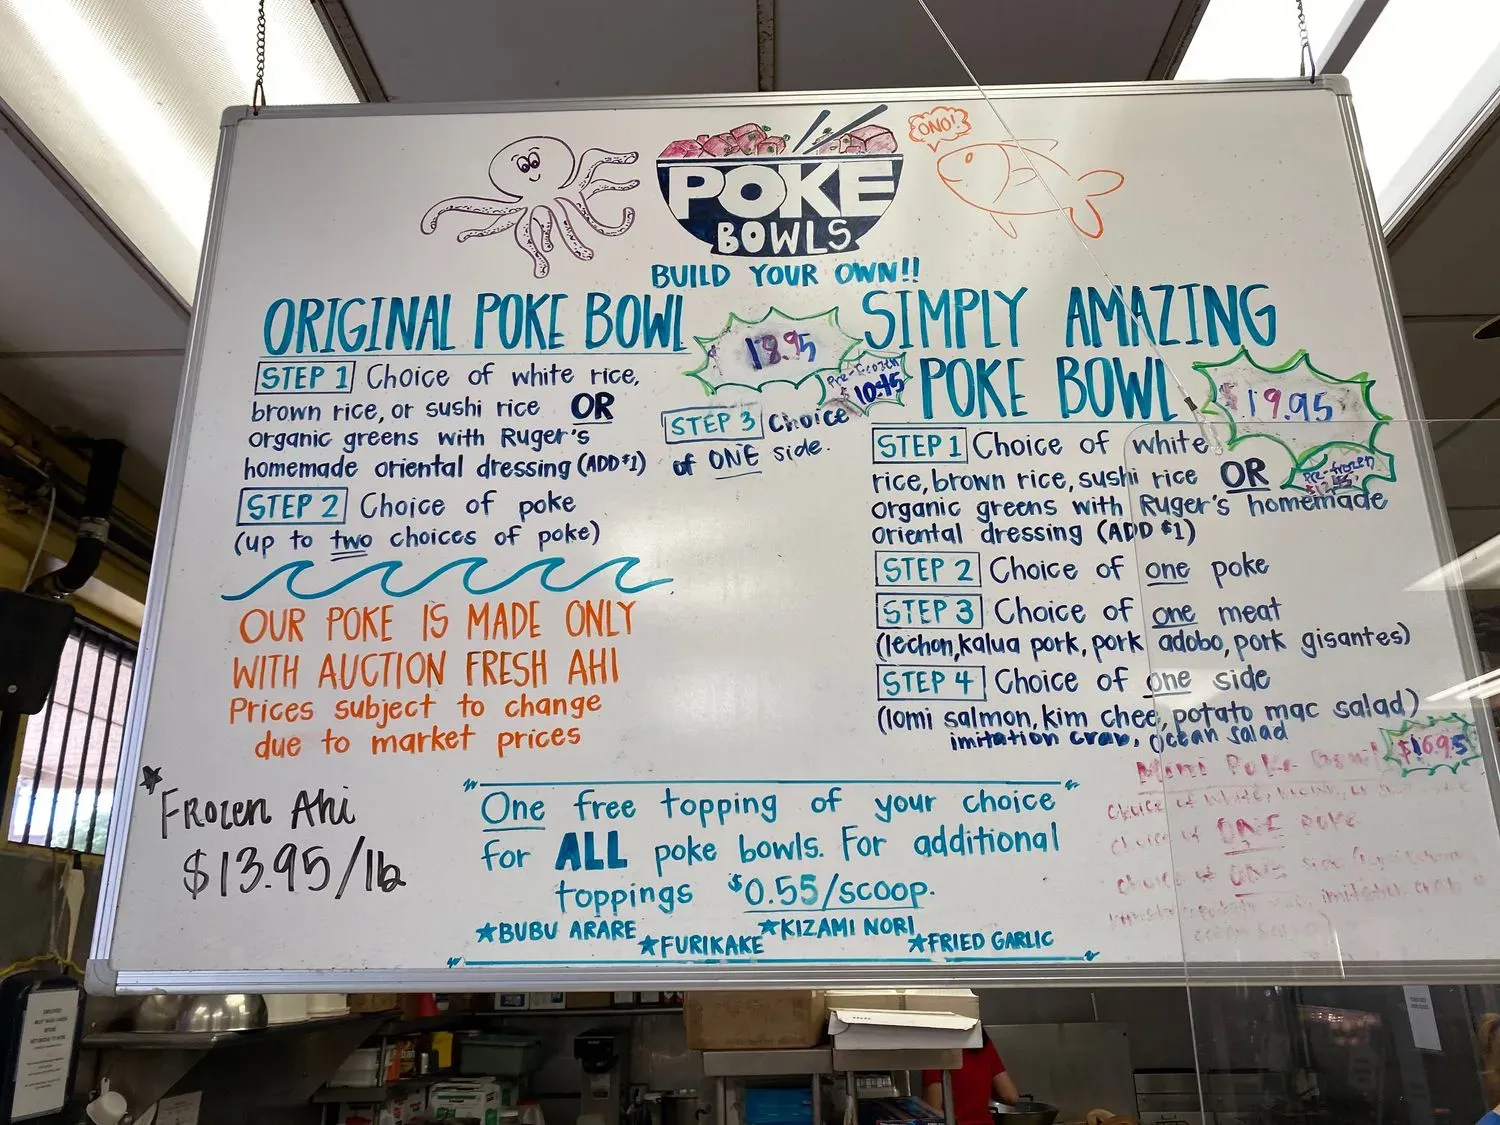 ONO!
POKE
BOWLS
BUILD YOUR OWN!!
ORIGINAL POKE BOWL
18.95
Pre-Frozen
10.95
STEP 1 Choice of white rice,
brown rice, or sushi rice OR
organic greens with Ruger's
homemade oriental dressing (ADD $1)
STEP 2 Choice of poke
(up to two choices of poke)
STEP 3 Choice
of ONE side.
OUR POKE IS MADE ONLY
WITH AUCTION FRESH AHI
Prices subject to change
due to market prices
SIMPLY AMAZING
POKE BOWL
$19.95
Pre-frozen
STEP 1 Choice of white
rice, brown rice, sushi rice OR
organic greens with Ruger's homemade
oriental dressing (ADD $1)
STEP 2 Choice of one poke
STEP 3 Choice of one meat
(lechon, kalua pork, pork adobo, pork gisantes)
STEP 4 Choice of one side
(lomi salmon, kim chee, potato mac salad)
imitation crab, ocean salad
$16.95
Mini Poke Bowl
Choice of white, brown, or
Choice of ONE poke
Choice of ONE side
imitation crab
Frozen Ahi
$13.95/lb
One free topping of your choice
for ALL poke bowls. For additional
toppings $0.55/scoop.
★BUBU ARARE ★FURIKAKE ★KIZAMI NORI ★FRIED GARLIC